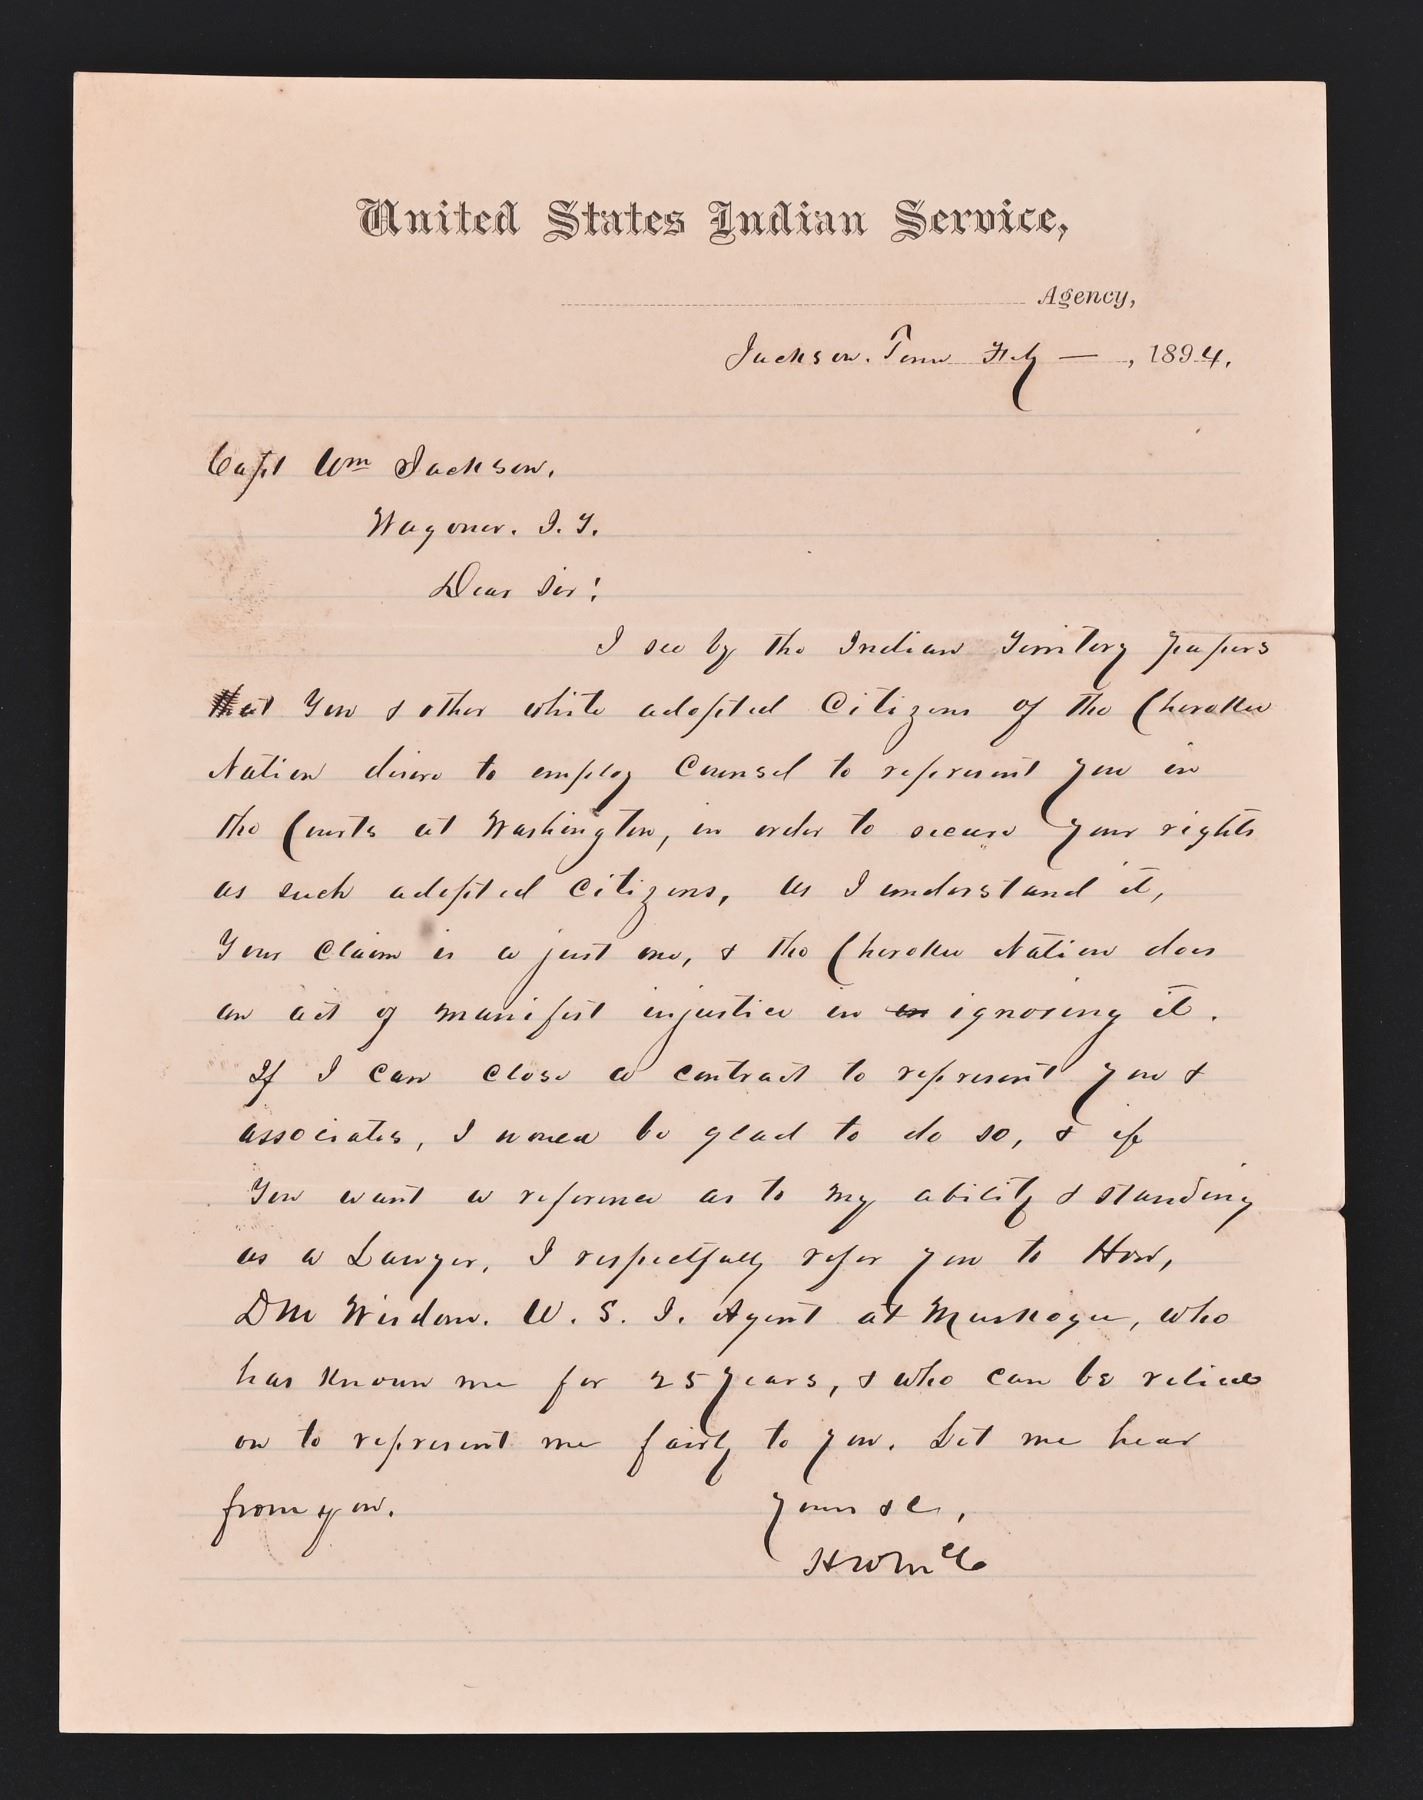 United States Indian Service,
Agency,
Jackson. Tenn Feby — , 1894.
Capt Wm Jackson.
Wagoner. I. T.
Dear Sir!
I see by the Indian Territory papers
that You & other white adopted Citizens of the Cherokee
Nation desire to employ Counsel to represent you in
the Courts at Washington, in order to secure your rights
as such adopted Citizens, as I understand it,
Your Claim is a just one, & the Cherokee Nation does
an act of manifest injustice in an ignoring it.
If I can close a contract to represent you &
associates, I would be glad to do so, & if
You want a reference as to my ability & standing
as a Lawyer, I respectfully refer you to Hon,
DM Wisdom. U. S. I. Agent at Muskogee, who
has known me for 25 years, & who can be relied
on to represent me fairly to you. Let me hear
from you.
Yours &c,